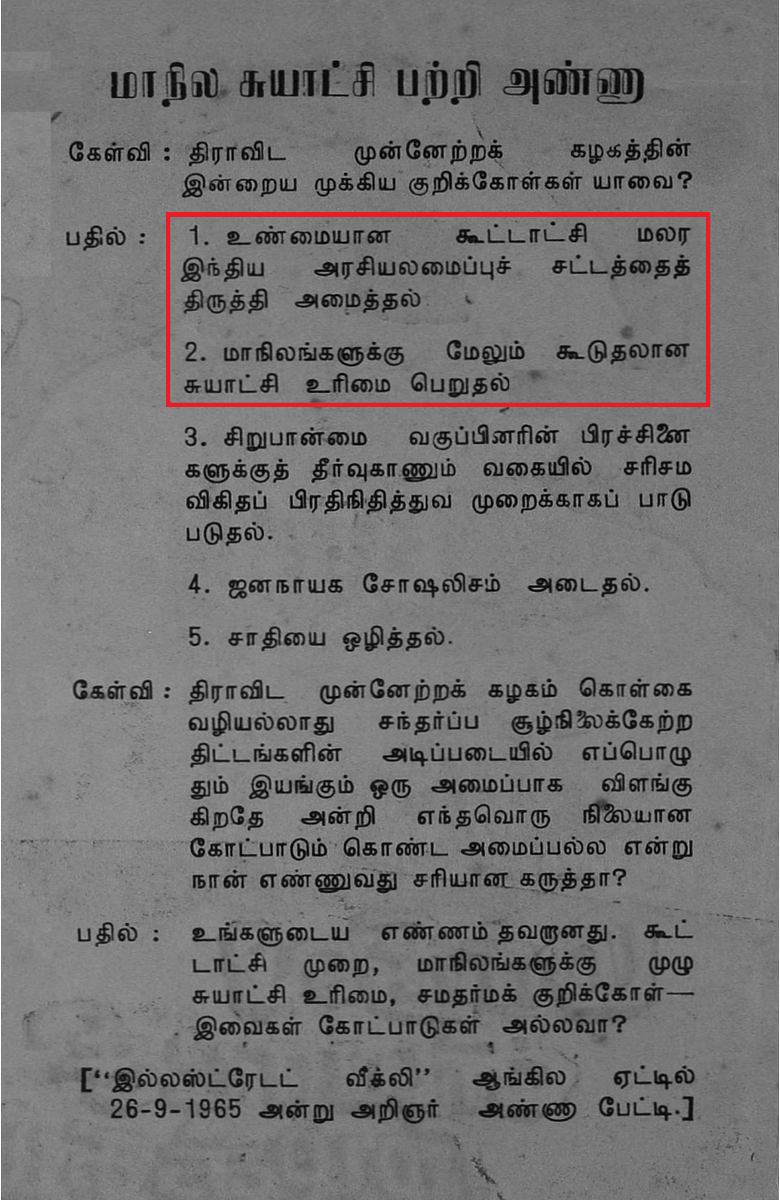 மாநில சுயாட்சி பற்றி அண்ணா
கேள்வி : திராவிட முன்னேற்றக் கழகத்தின்
இன்றைய முக்கிய குறிக்கோள்கள் யாவை?
பதில் : 1. உண்மையான கூட்டாட்சி மலர
இந்திய அரசியலமைப்புச் சட்டத்தைத்
திருத்தி அமைத்தல்
2. மாநிலங்களுக்கு மேலும் கூடுதலான
சுயாட்சி உரிமை பெறுதல்
3. சிறுபான்மை வகுப்பினரின் பிரச்சினை
களுக்குத் தீர்வுகாணும் வகையில் சரிசம
விகிதப் பிரதிநிதித்துவ முறைக்காகப் பாடு
படுதல்.
4. ஜனநாயக சோஷலிசம் அடைதல்.
5. சாதியை ஒழித்தல்.
கேள்வி : திராவிட முன்னேற்றக் கழகம் கொள்கை
வழியல்லாது சந்தர்ப்ப சூழ்நிலைக்கேற்ற
திட்டங்களின் அடிப்படையில் எப்பொழு
தும் இயங்கும் ஒரு அமைப்பாக விளங்கு
கிறதே அன்றி எந்தவொரு நிலையான
கோட்பாடும் கொண்ட அமைப்பல்ல என்று
நான் எண்ணுவது சரியான கருத்தா?
பதில் : உங்களுடைய எண்ணம் தவறானது. கூட்
டாட்சி முறை, மாநிலங்களுக்கு முழு
சுயாட்சி உரிமை, சமதர்மக் குறிக்கோள்—
இவைகள் கோட்பாடுகள் அல்லவா?
[“இல்லஸ்ட்ரேடட் வீக்லி” ஆங்கில ஏட்டில்
26-9-1965 அன்று அறிஞர் அண்ணா பேட்டி.]